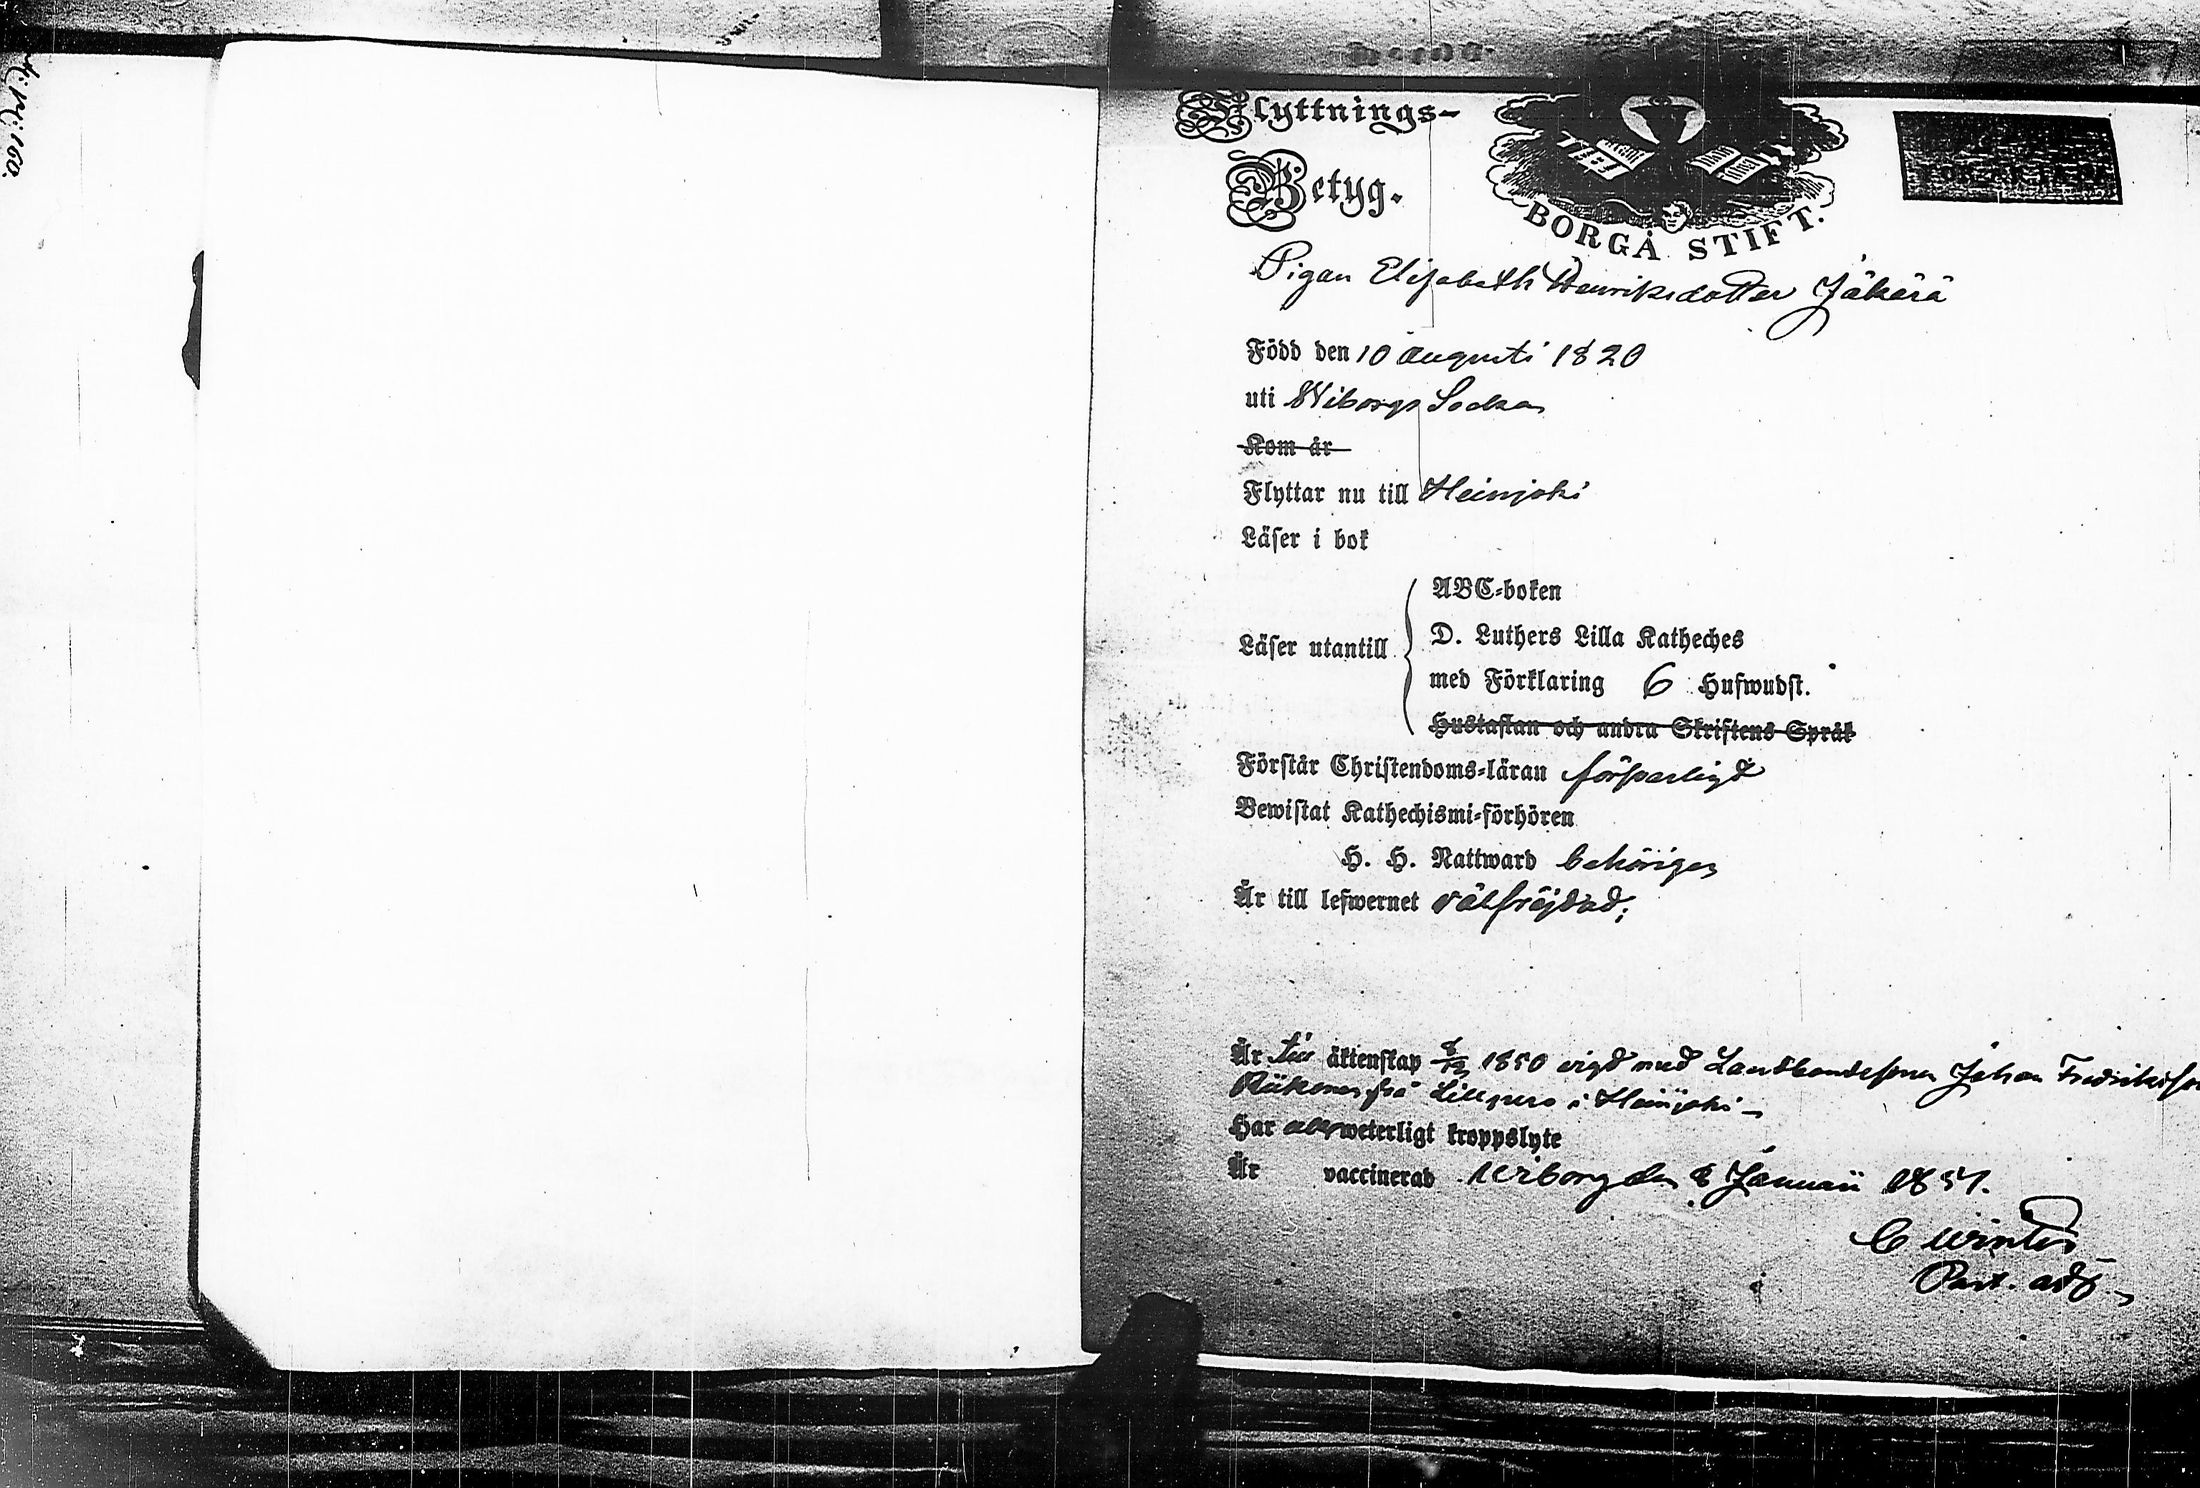 Flyttnings-
Betyg.
BORGÅ STIFT.
Pigan Elisabeth Henriksdotter Jäkärä
Född den 10 Augusti 1820
uti Wiborgs Socken
Kom år
Flyttar nu till Heinjoki
Läser i bok
Läser utantill
ABC-boken
D. Luthers Lilla Katheches
med Förklaring 6 Hufwudst.
Hustaflan och andra Skriftens Språk
Förstår Christendoms-läran försvarligt
Bewistat Kathechismi-förhören
H. H. Nattward behörigen
Är till lefwernet välfräjdad;
Är till äktenskap 1850 vigd med Landbondesonen Johan Fredriksson
från i Heinjoki
Har weterligt kroppslyte
Är vaccinerad Wiborg den 8 Januarii 1851.
C Winter
Past. adj.